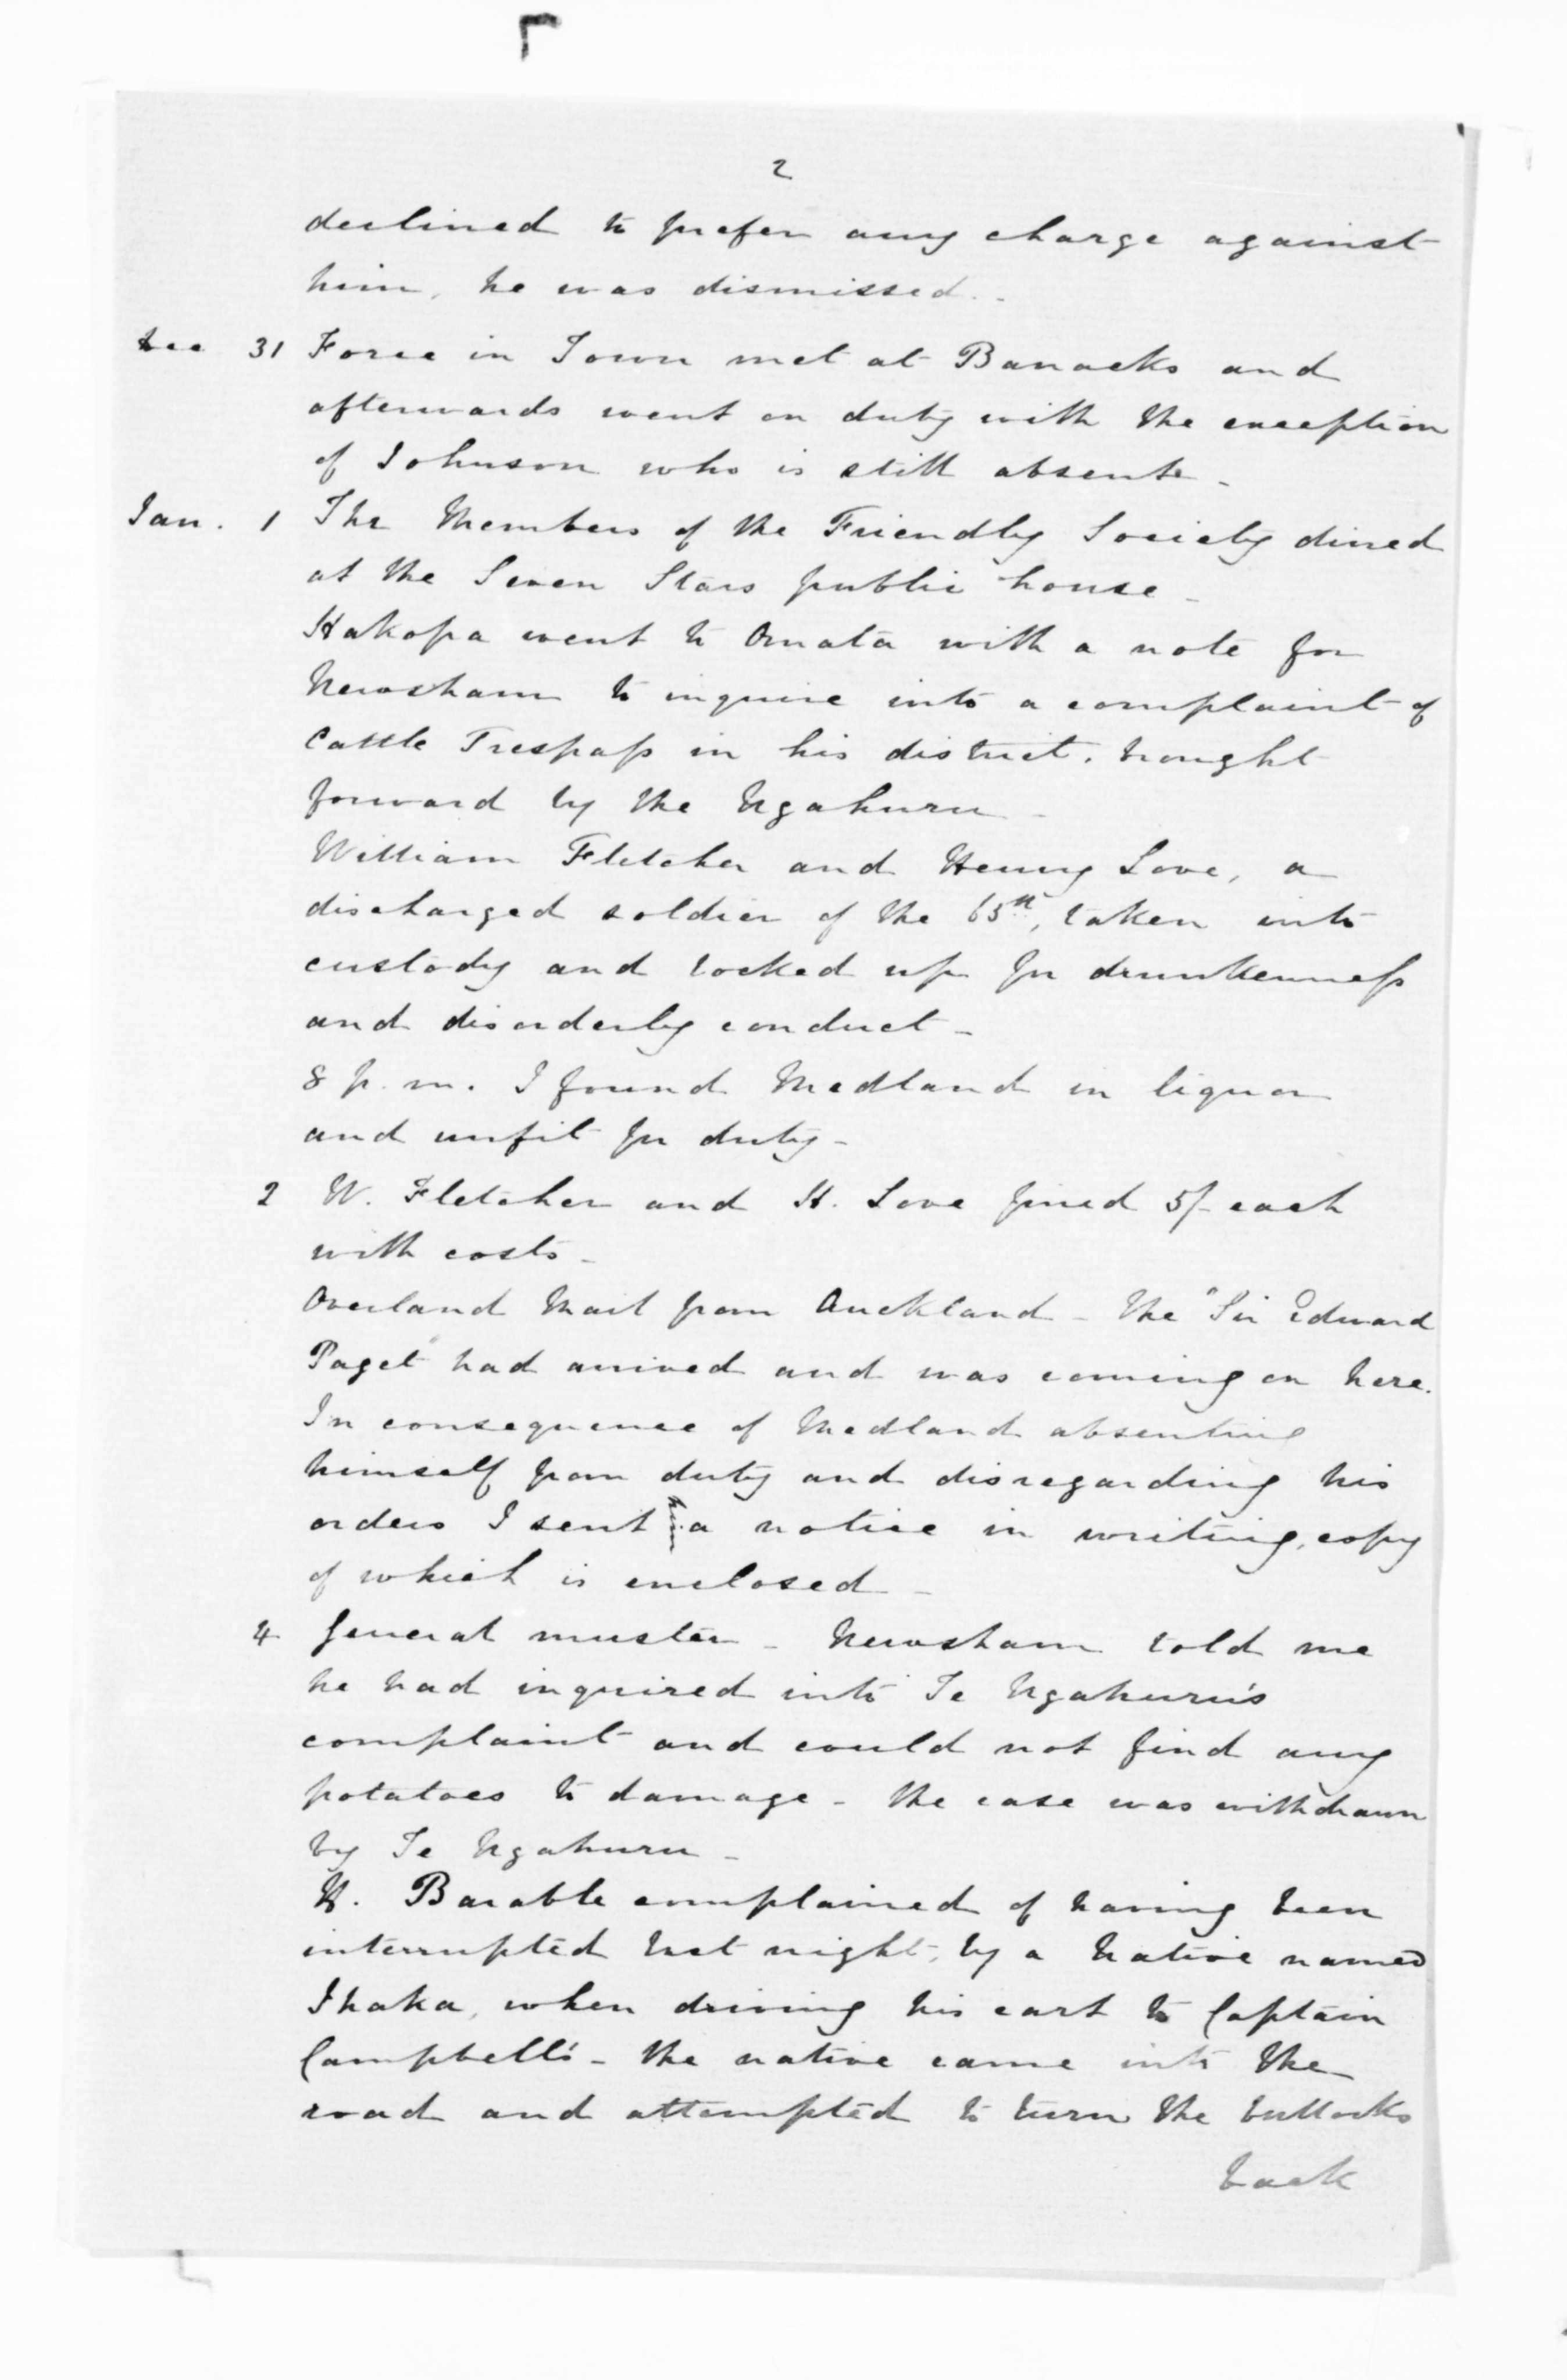 2
declined to prefer any charge against
him, he was dismissed.
Dec 31 Force in Town met at Barracks and
afterwards went on duty with the exception
of Johnson who is still absent.
Jan. 1 The Members of the Friendly Society dined
at the Seven Stars public house -
Hakopa went to Omata with a note for
Newsham to inquire into a complaint of
Cattle Trespass in his district, brought
forward by the Ngahuru -
William Fletcher and Henry Love, a
discharged soldier of the 65th, taken into
custody and locked up for drunkenness
and disorderly conduct -
8 p.m. I found Medland in liquor
and unfit for duty -
2 W. Fletcher and H. Love fined 5/- each
with costs -
Overland Mail from Auckland - the "Sir Edward
Paget" had arrived and was coming on here.
In consequence of Medland absenting
himself from duty and disregarding his
orders I sent him a notice in writing, copy
of which is enclosed -
4 General muster - Newsham told me
he had inquired into Te Ngahuru's
complaint and could not find any
potatoes to damage - the case was withdrawn
by Te Ngahuru -
H. Barable complained of having been
interrupted last night, by a Native named
Ihaka, when driving his cart to Captain
Campbell's - the native came into the
road and attempted to turn the bullocks
back